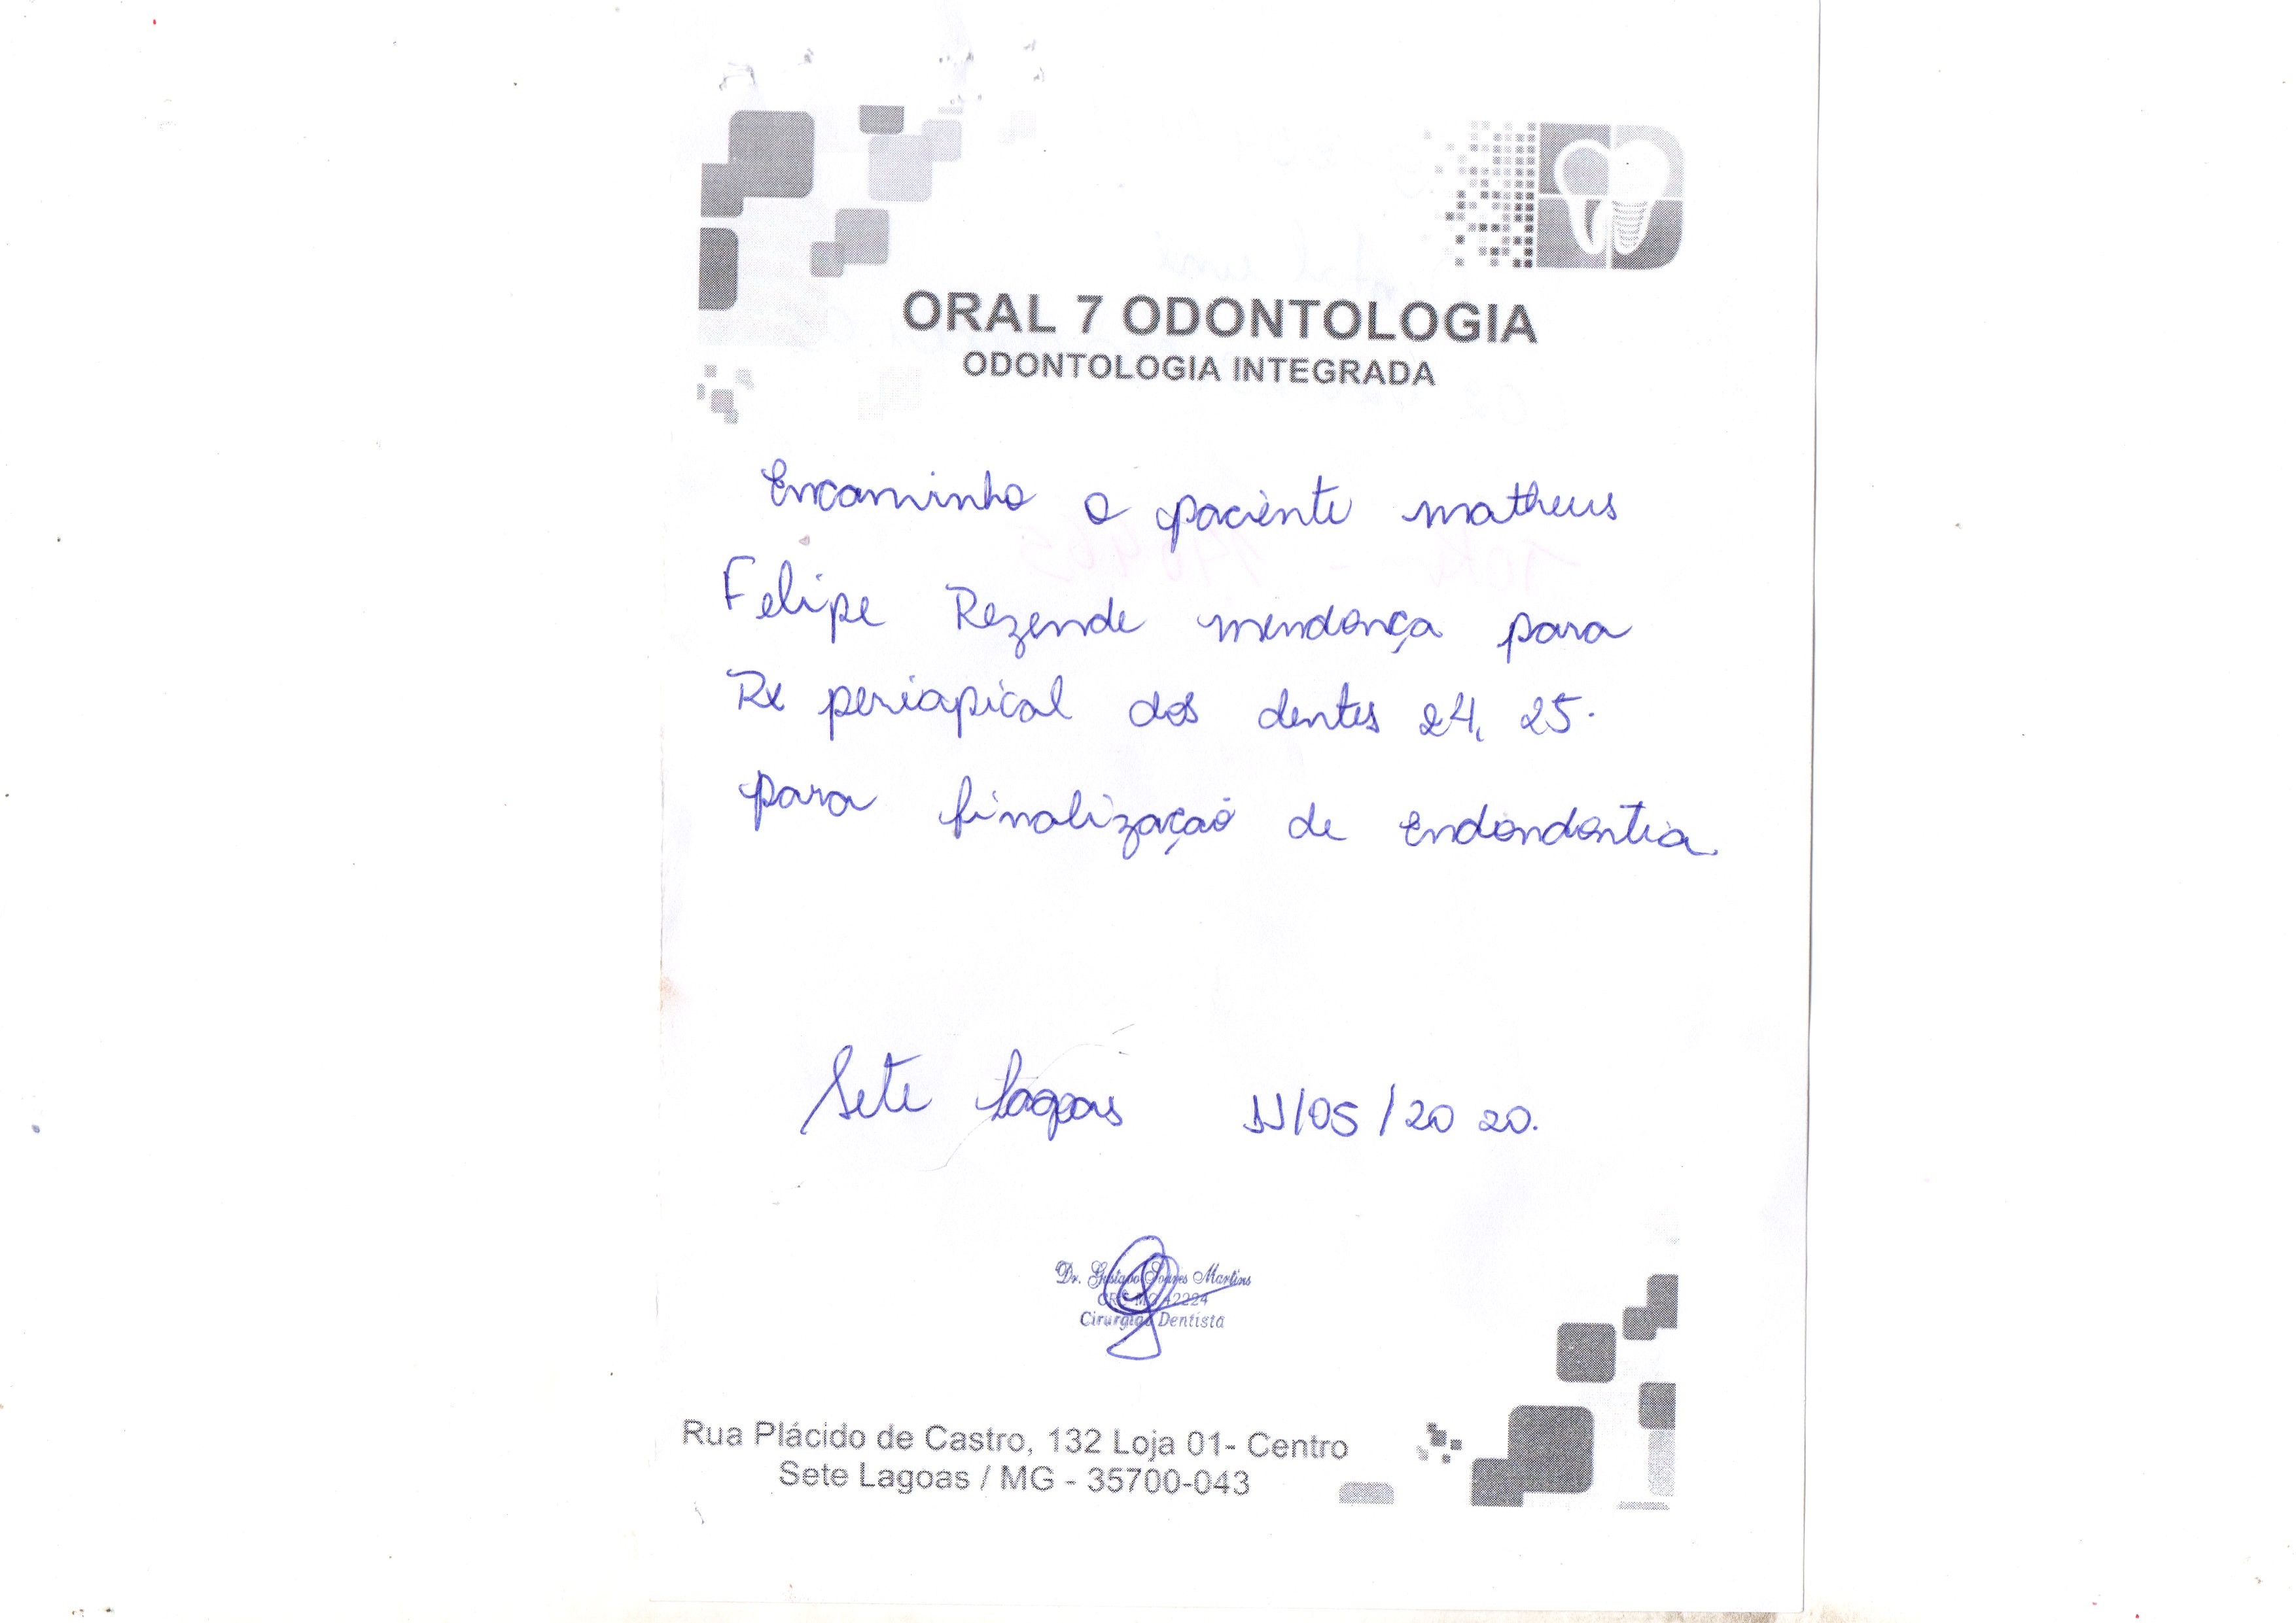 ORAL 7 ODONTOLOGIA
ODONTOLOGIA INTEGRADA
Encaminho o paciente matheus
Felipe Rezende mendonça para
Rx periapical dos dentes 24, 25.
para finalização de endondontia.
Sete Lagoas 11/05/2020.
Dr. Gustavo Soares Martins
CRO-MG 42224
Cirurgião Dentista
Rua Plácido de Castro, 132 Loja 01- Centro
Sete Lagoas / MG - 35700-043